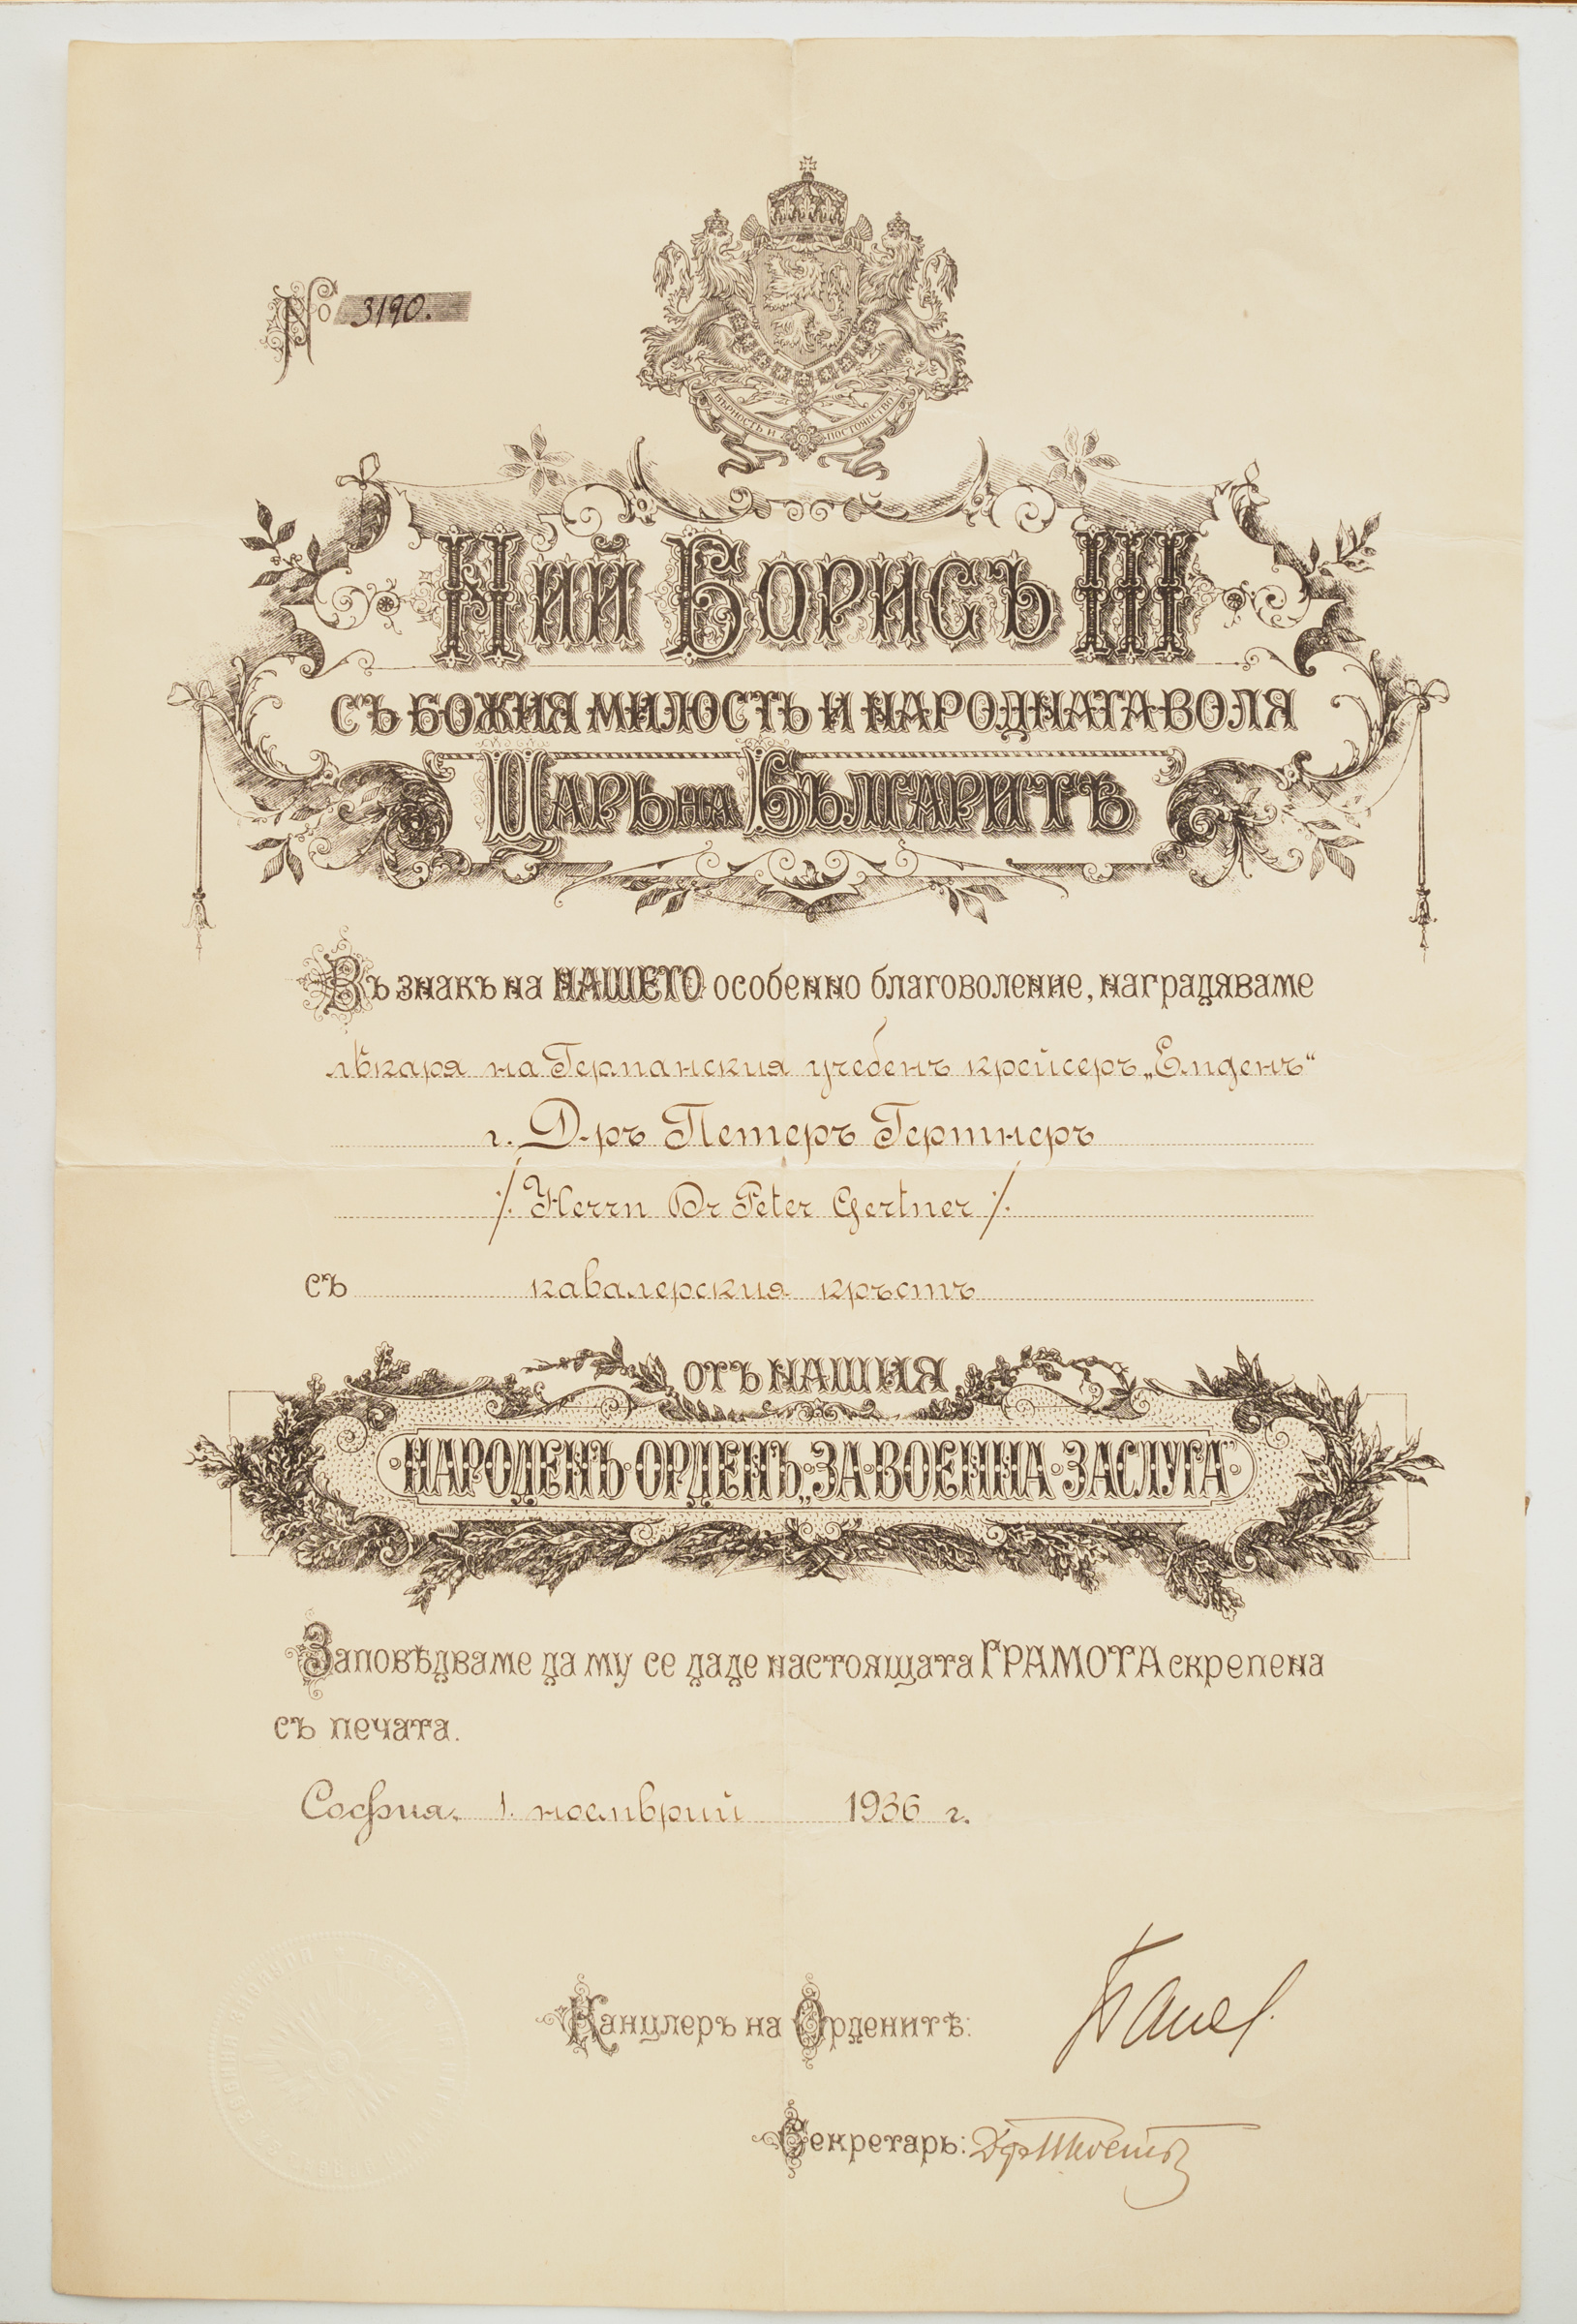 № 3190.
ВѢРНОСТЬ И ПОСТОЯНСТВО
Ний Борисъ III
СЪ БОЖИЯ МИЛОСТЬ И НАРОДНАТА ВОЛЯ
Царь на Българитѣ
Въ знакъ на НАШЕТО особенно благоволение, награждаваме
лѣкаря на Германския учебенъ крейсеръ „Емденъ“
г. Д-ръ Петеръ Гертнеръ
/. Herrn Dr Peter Gertner /.
съ кавалерския кръстъ
отъ НАШИЯ
НАРОДЕНЪ ОРДЕНЪ „ЗА ВОЕННА ЗАСЛУГА”
Заповѣдваме да му се даде настоящата ГРАМОТА скрепена
съ печата.
София, 1. ноемврий 1936 г.
Канцлеръ на Орденитѣ:
Секретарь: